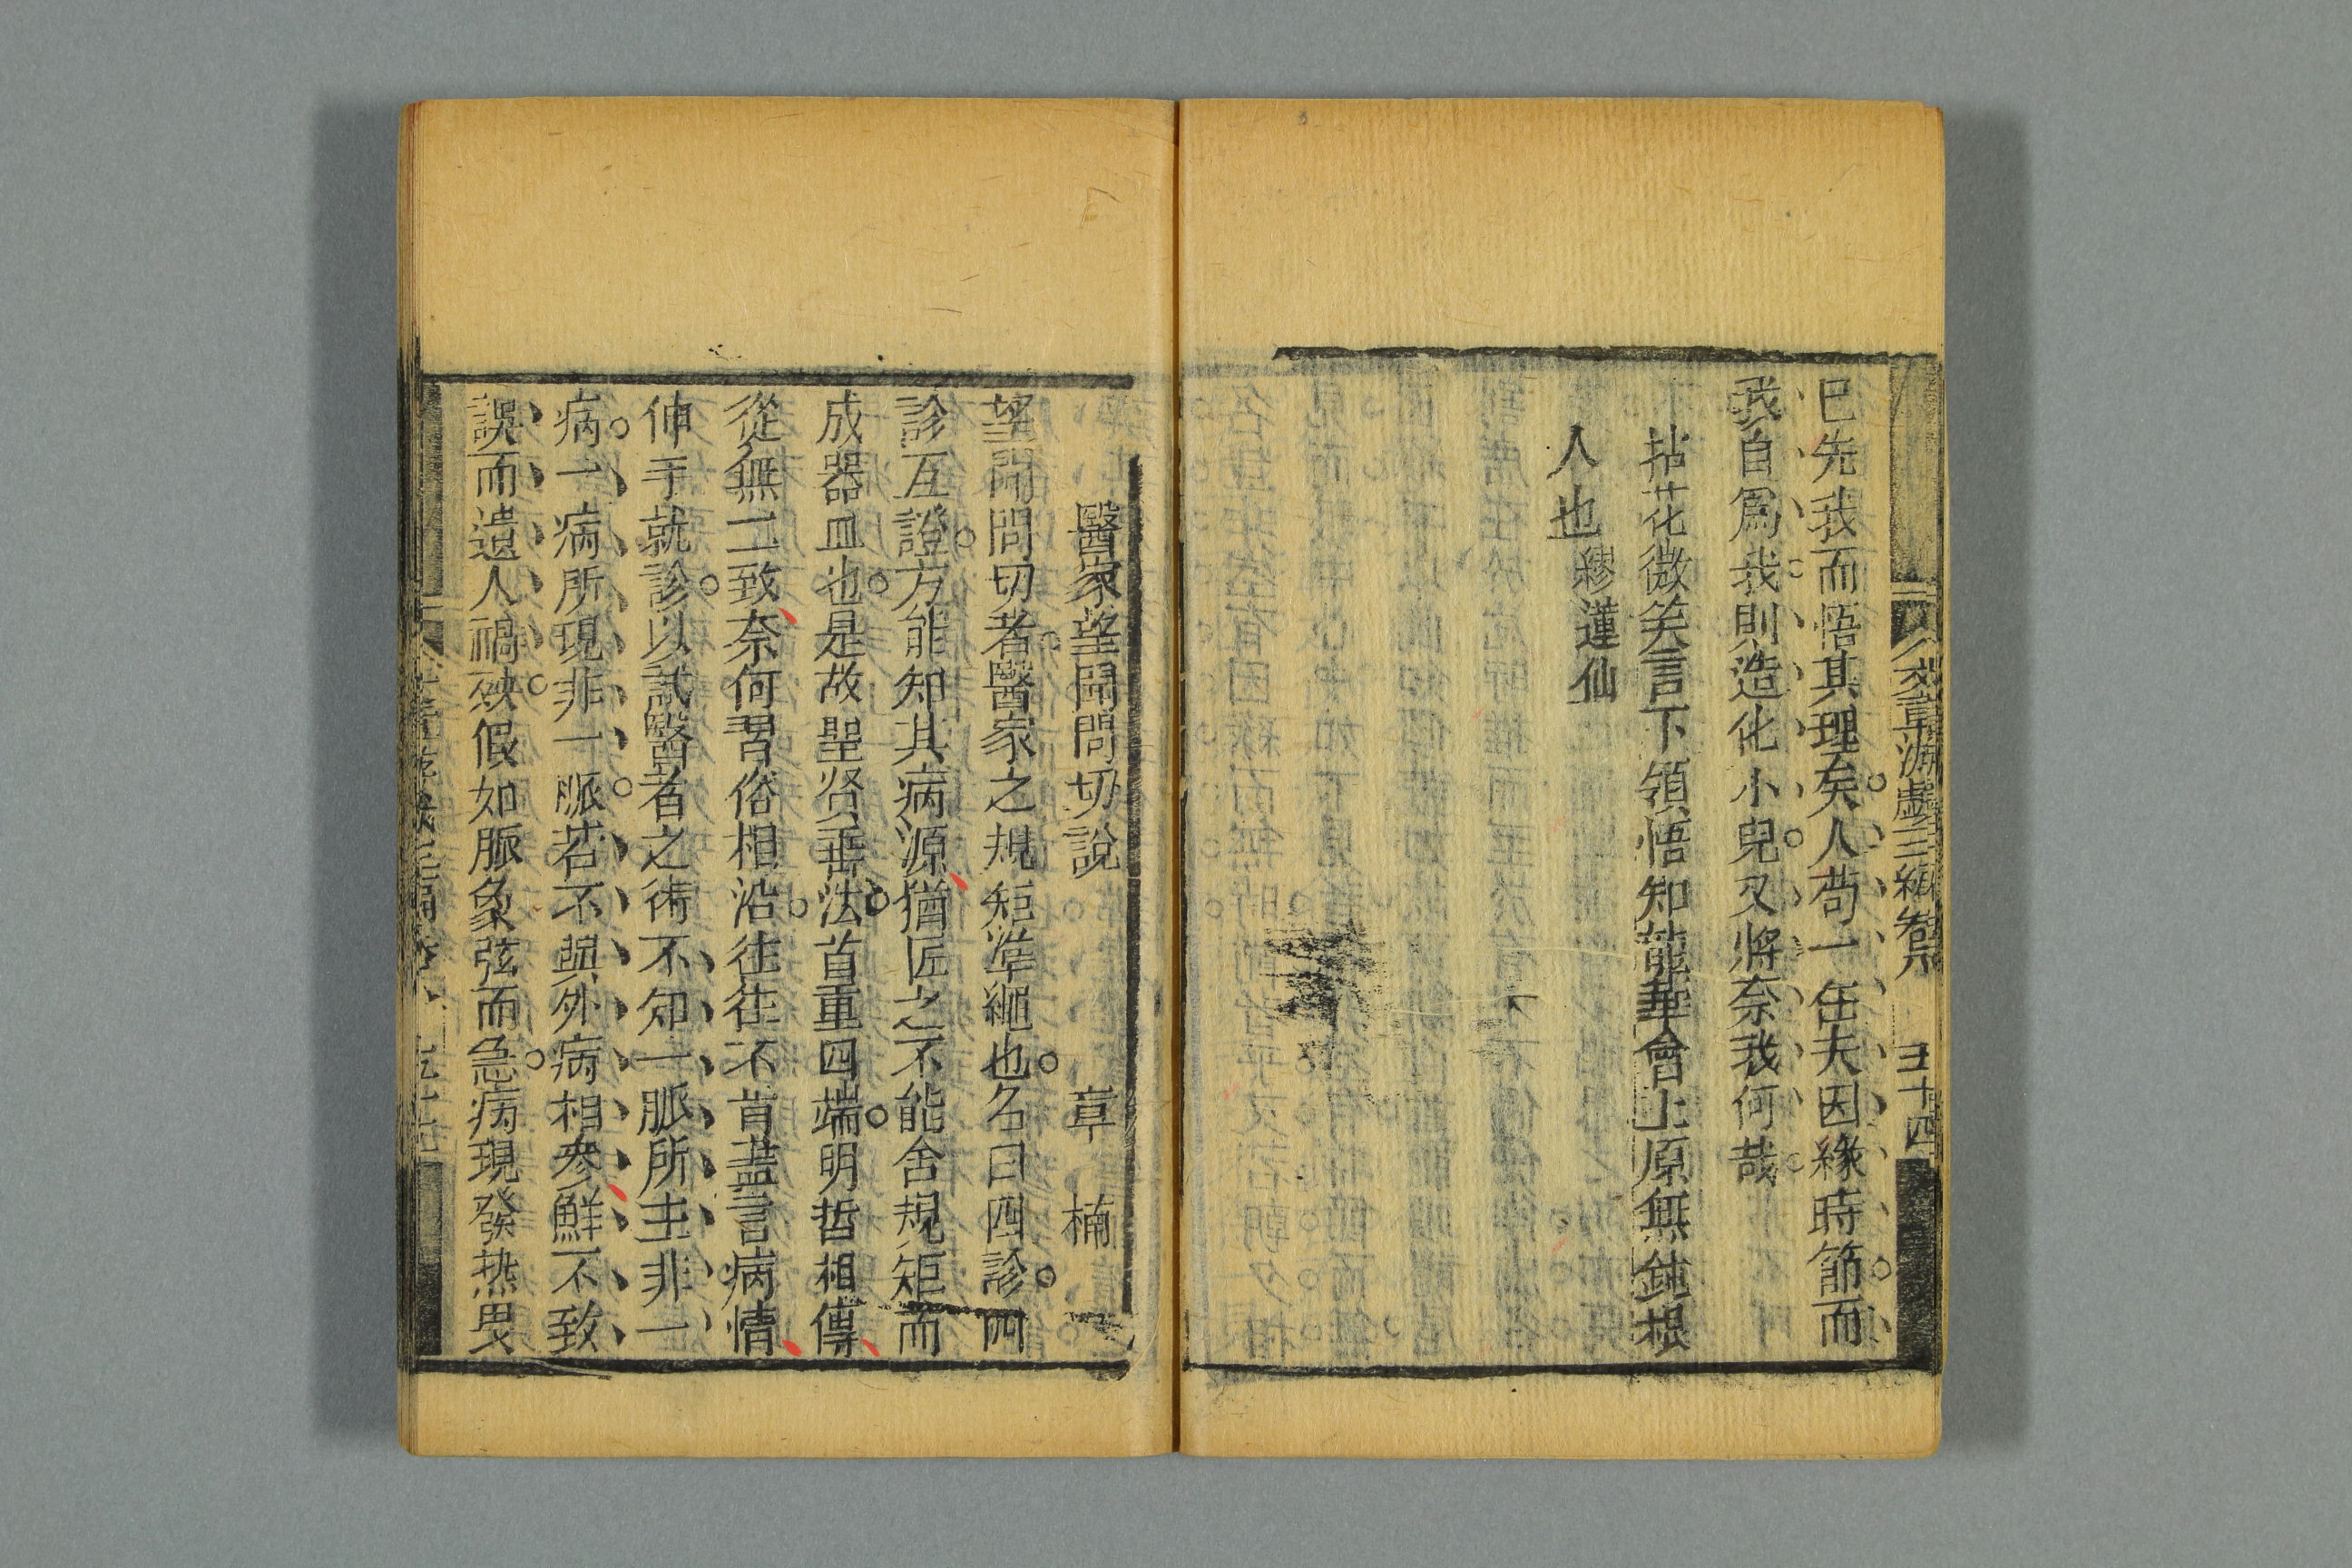 文章游戲三編卷八 五十四
巳先我而悟其理矣人苟一任夫因緣時節而
我自爲我則造化小兒又將奈我何哉
拈花微笑言下領悟知龍華會上原無鈍根
人也 繆蓮仙
醫家望聞問切說 章 楠
望聞問切者醫家之規矩準繩也名曰四診四
診互證方能知其病源猶匠之不能舍規矩而
成器皿也是故聖賢垂法首重四端明哲相傳
從無二致奈何習俗相沿往往不肯盡言病情
伸手就診以試醫者之術不知一脈所主非一
病一病所現非一脈若不與外病相參鮮不致
誤而遺人禍殃假如脈象弦而急病現發熱畏